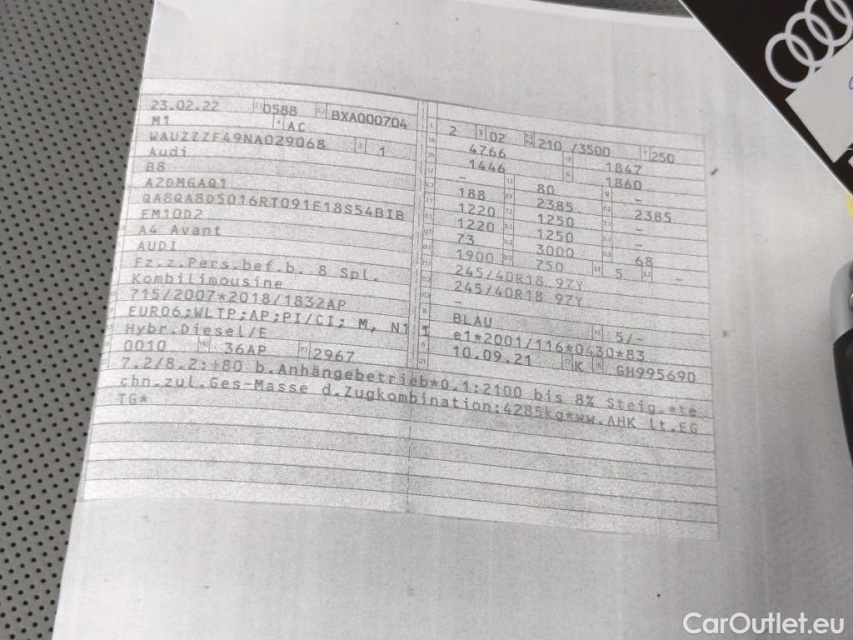 23.02.22 0588 BXA000704
M1 AC
WAUZZZF49NA029068 1
Audi
B8
A2DMGAQ1
QA8QA8D5016RT091E18S54BIB
EM10D2
A4 Avant
AUDI
Fz.z.Pers.bef.b. 8 Spl.
Kombilimousine
715/2007*2018/1832AP
EURO6;WLTP;AP;PI/CI; M, N1
Hybr.Diesel/E
0010 36AP 2967
2 02 210 /3500 250
4766 1847
1446 1860
- 80 -
188 2385 2385
1220 1250 -
1220 1250 -
73 3000 68
1900 750 5 -
245/40R18 97Y
245/40R18 97Y
-
BLAU 5/-
e1*2001/116*0430*83
10.09.21 K GH995690
7.2/8.2:+80 b.Anhängebetrieb*0.1:2100 bis 8% Steig.*te
chn.zul.Ges-Masse d.Zugkombination:4285kg*ww.AHK lt.EG
TG*
CarOutlet.eu